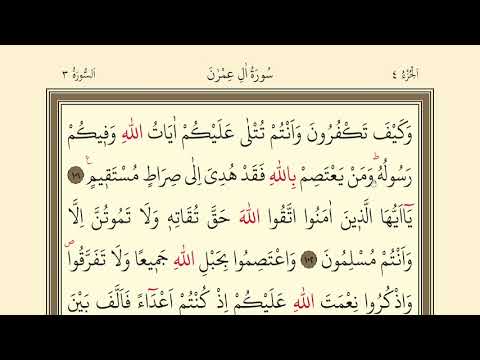 اَلْجُزْءُ ٤ سُورَةُ اٰلِ عِمْرٰنَ اَلسُّورَةُ ٣
وَكَيْفَ تَكْفُرُونَ وَاَنْتُمْ تُتْلٰى عَلَيْكُمْ اٰيَاتُ اللّٰهِ وَفِيكُمْ
رَسُولُهُۜ وَمَنْ يَعْتَصِمْ بِاللّٰهِ فَقَدْ هُدِيَ اِلٰى صِرَاطٍ مُسْتَقِيمٍ۟ ١٠١
يَٓا اَيُّهَا الَّذِينَ اٰمَنُوا اتَّقُوا اللّٰهَ حَقَّ تُقَاتِهِ وَلَا تَمُوتُنَّ اِلَّا
وَاَنْتُمْ مُسْلِمُونَ ١٠٢ وَاعْتَصِمُوا بِحَبْلِ اللّٰهِ جَمِيعًا وَلَا تَفَرَّقُواۖ
وَاذْكُرُوا نِعْمَتَ اللّٰهِ عَلَيْكُمْ اِذْ كُنْتُمْ اَعْدَٓاءً فَاَلَّفَ بَيْنَ